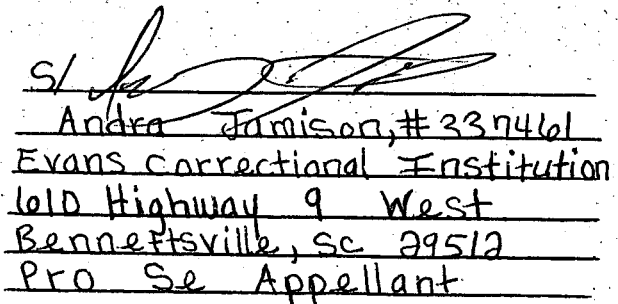 S/
Andra Jamison, # 337461
Evans Correctional Institution
610 Highway 9 West
Bennettsville, SC 29512
Pro Se Appellant